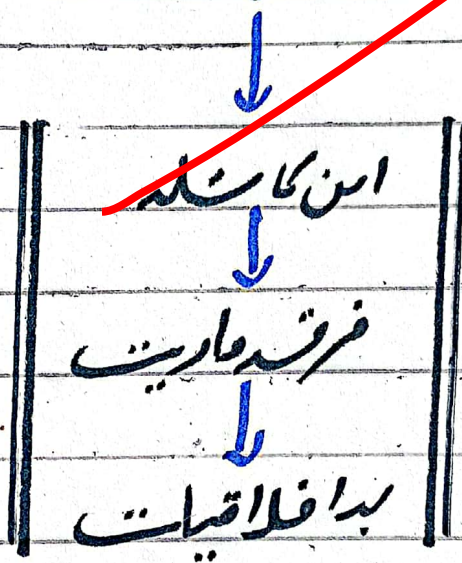 امن کا مسئلہ
فرقہ واریت
بد اخلاقیات